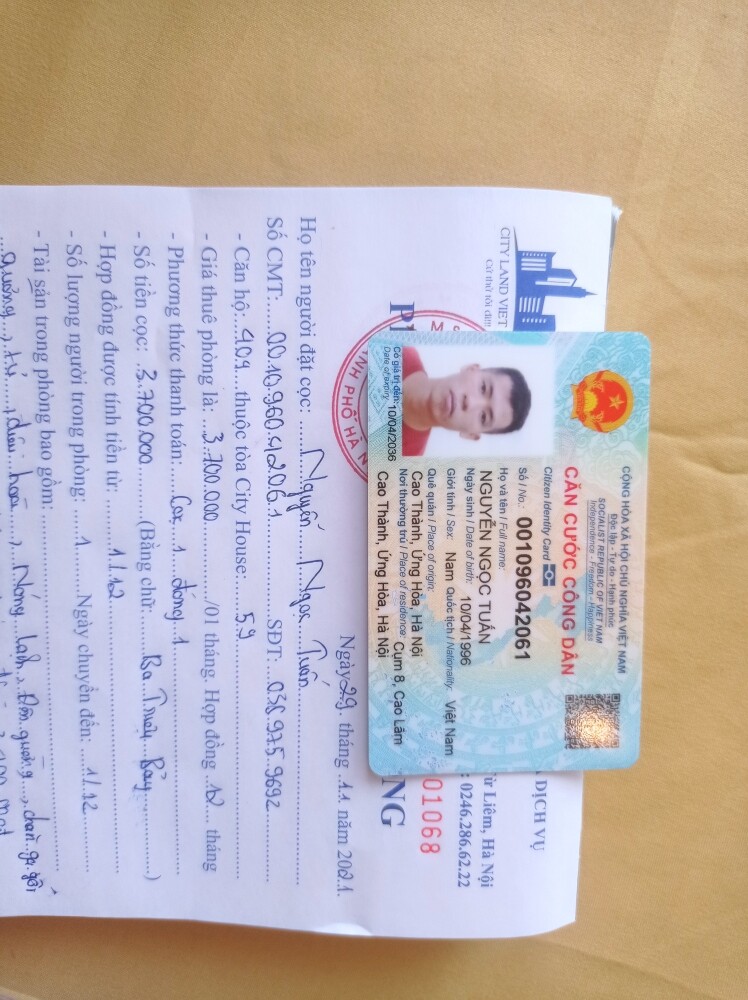 CITY LAND VIET
Cứ thở tôi đi!!!
DỊCH VỤ
Từ Liêm, Hà Nội
: 0246.286.62.22
01068
NG
MH PHỐ HÀ N
CỘNG HÒA XÃ HỘI CHỦ NGHĨA VIỆT NAM
Độc lập - Tự do - Hạnh phúc
SOCIALIST REPUBLIC OF VIET NAM
Independence - Freedom - Happiness
CĂN CƯỚC CÔNG DÂN
Citizen Identity Card
Số / No.: 001096042061
Họ và tên / Full name:
NGUYỄN NGỌC TUẤN
Ngày sinh / Date of birth: 10/04/1996
Giới tính / Sex: Nam Quốc tịch / Nationality: Việt Nam
Quê quán / Place of origin:
Cao Thành, Ứng Hòa, Hà Nội
Nơi thường trú / Place of residence: Cụm 8, Cao Lãm
Cao Thành, Ứng Hòa, Hà Nội
Có giá trị đến: 10/04/2036
Date of expiry
Ngày 29 tháng 11 năm 2021.
Họ tên người đặt cọc: Nguyễn Ngọc Tuấn
Số CMT: 001096042061 SĐT: 0389759692
- Căn hộ: 409 thuộc tòa City House 59
- Giá thuê phòng là 3.700.000 /01 tháng. Hợp đồng 12 tháng
- Phương thức thanh toán: Cọc 1 đóng 1
- Số tiền cọc: 3.700.000 (Bằng chữ: Ba Triệu Bảy)
- Hợp đồng được tính tiền từ: 1/12
- Số lượng người trong phòng: 1 Ngày chuyển đến: 1/12
- Tài sản trong phòng bao gồm:
Giường, tủ, điều hòa, Nóng lạnh,